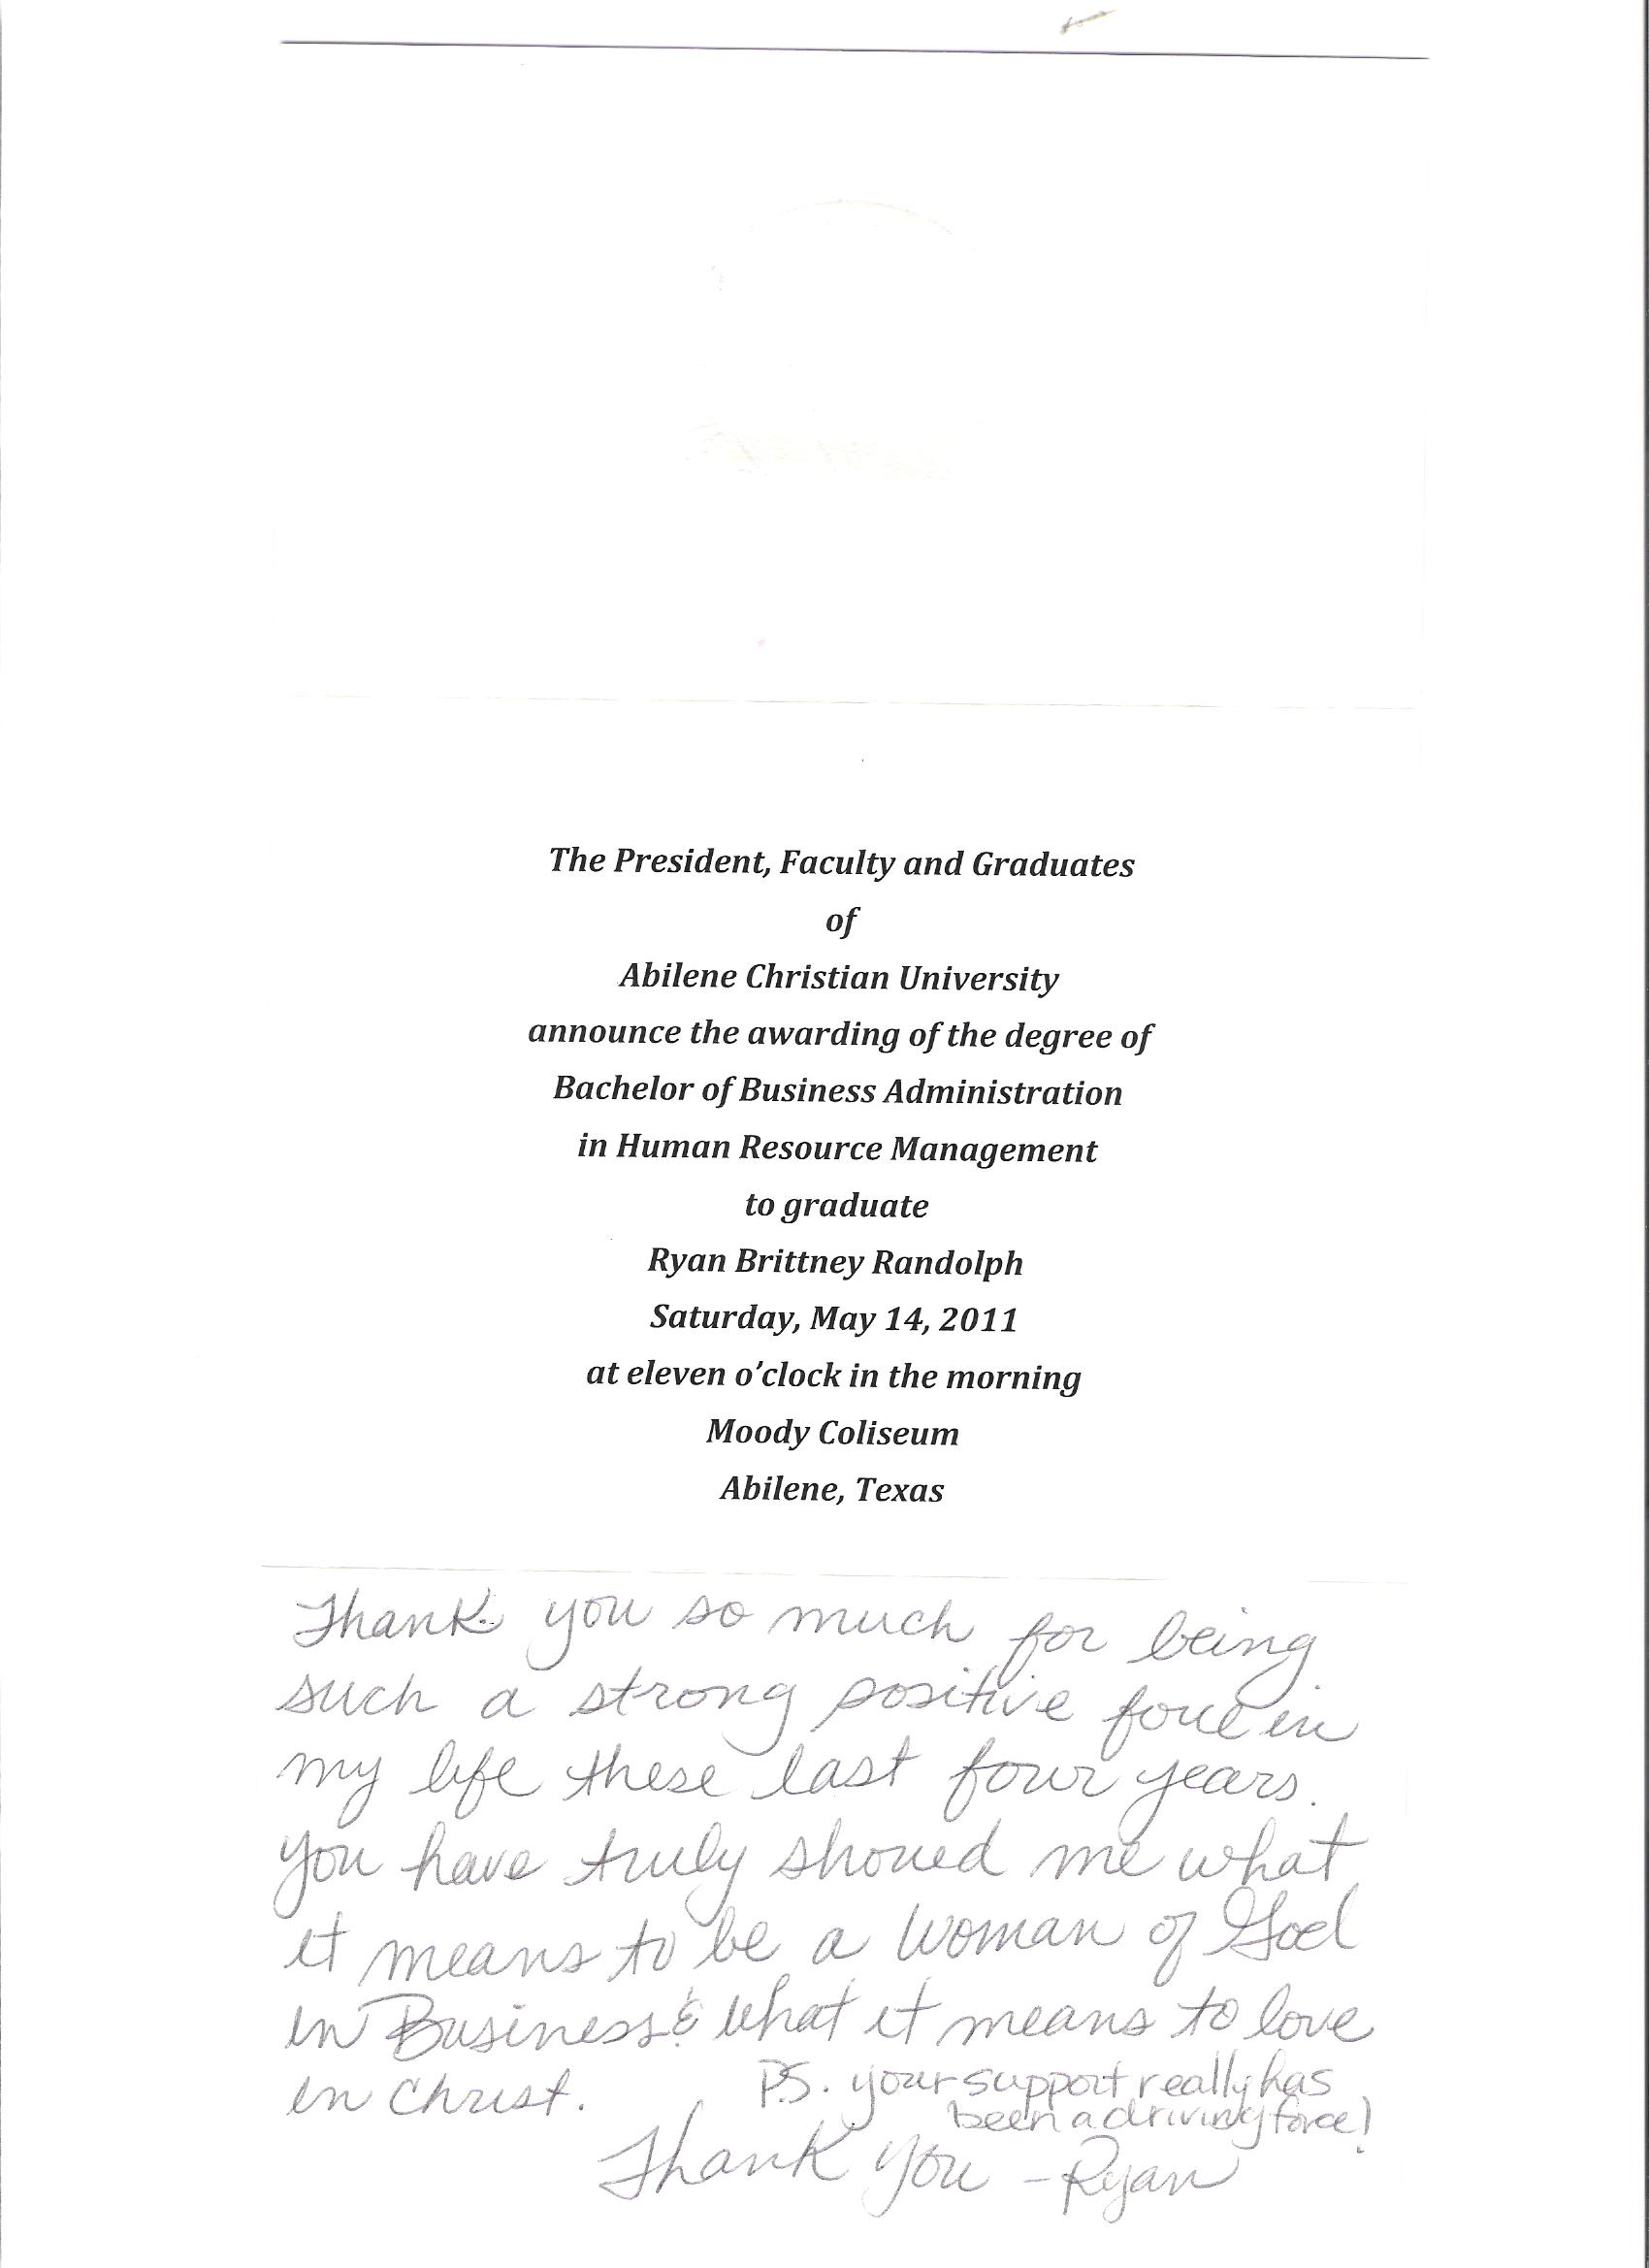 The President, Faculty and Graduates
of
Abilene Christian University
announce the awarding of the degree of
Bachelor of Business Administration
in Human Resource Management
to graduate
Ryan Brittney Randolph
Saturday, May 14, 2011
at eleven o'clock in the morning
Moody Coliseum
Abilene, Texas
Thank you so much for being
such a strong positive force in
my life these last four years.
You have truly showed me what
it means to be a woman of God
in Business & what it means to love
in Christ.
P.S. your support really has
been a driving force!
Thank you - Ryan